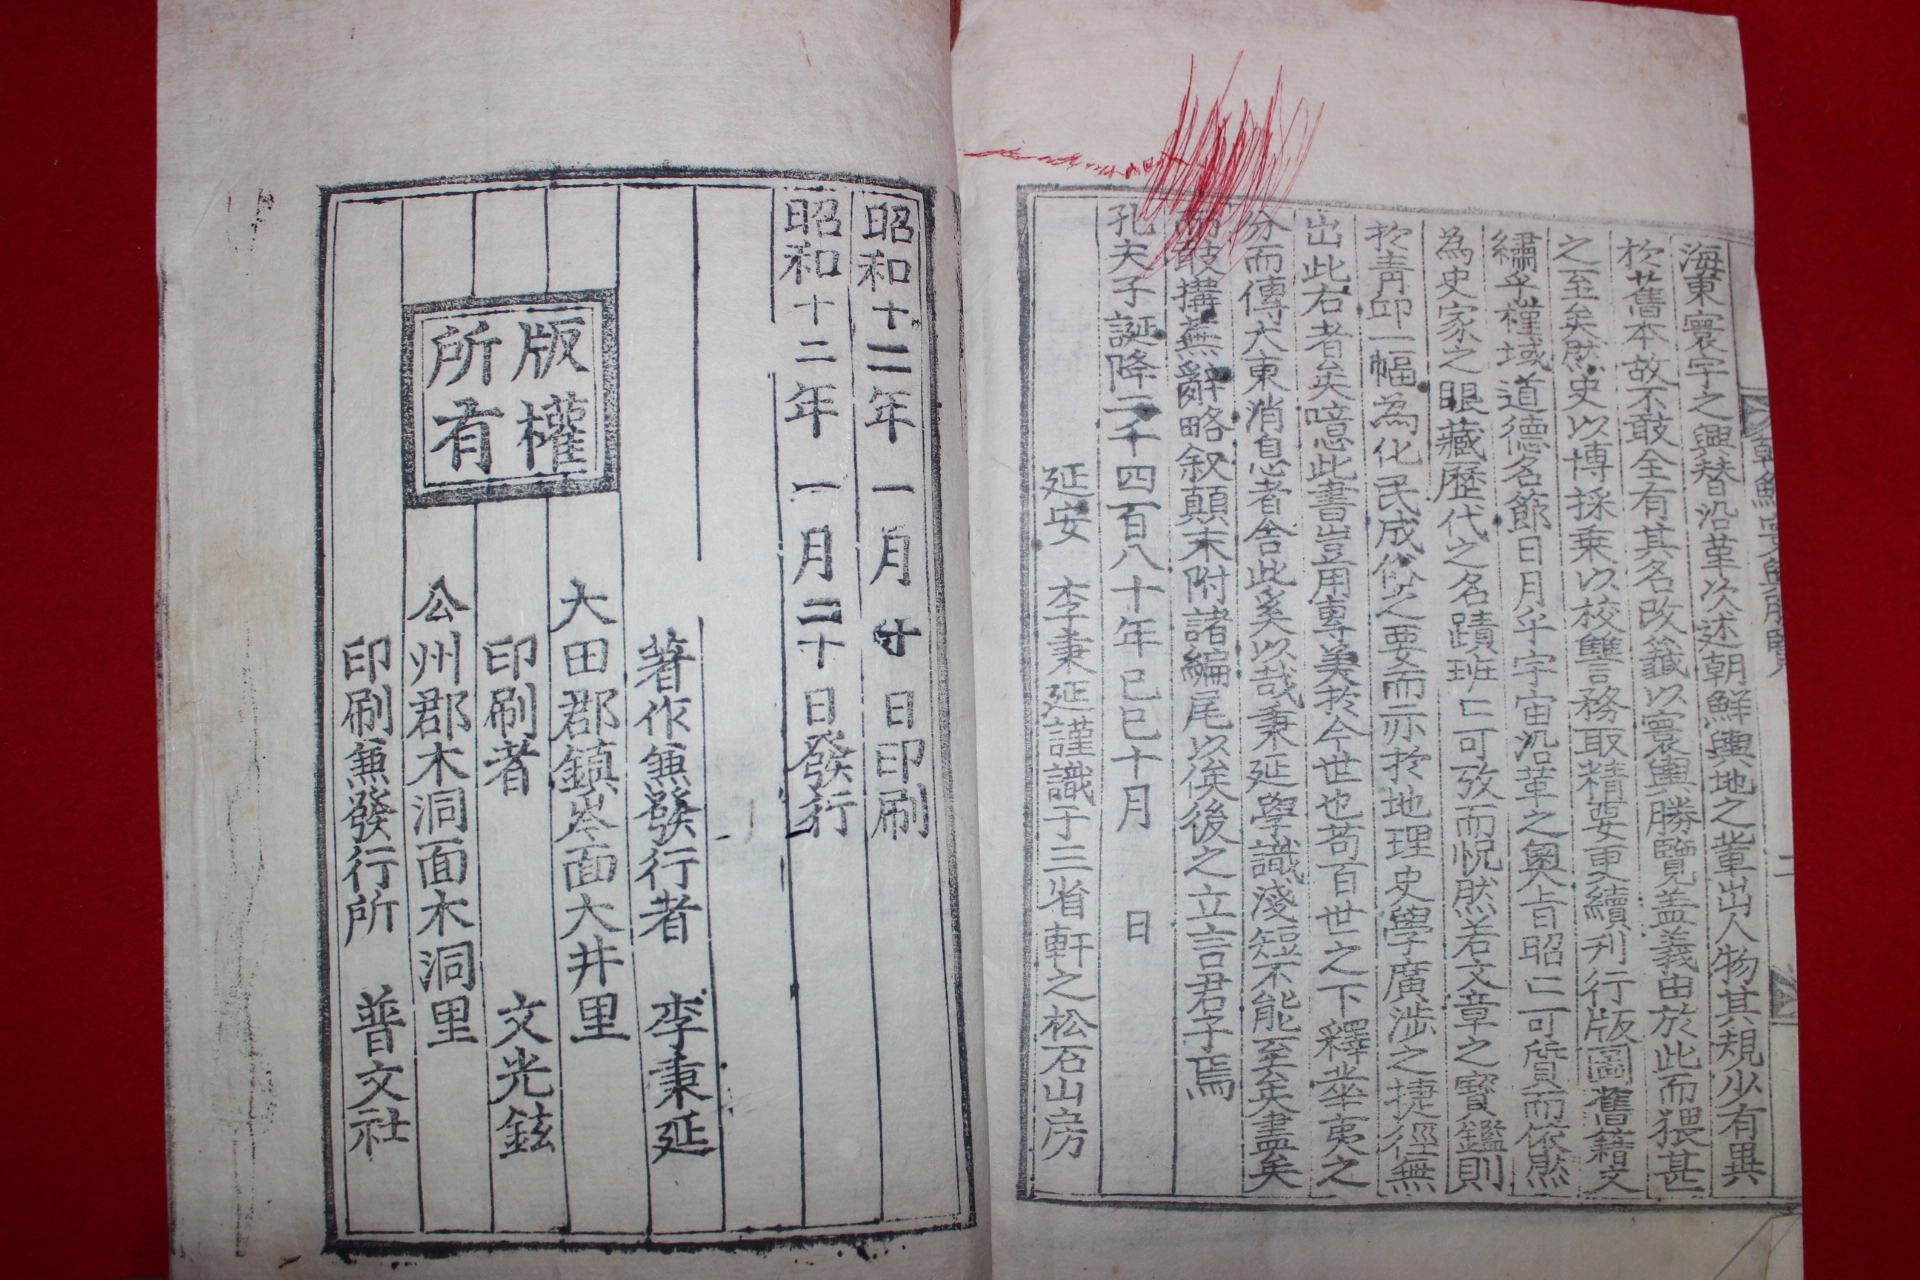 海東寰宇之興替沿革次述朝鮮輿地之輩出人物其規少有異
於舊本故不敢全有其名改籤以寰輿勝覽盖義由於此而猥甚
之至矣然史以博採乗以校讐務取精要更續刊行版圖舊籍文
繡乎槿域道德名節日月乎宇宙沿革之奧旨昭〻可質而依然
為史家之眼藏歷代之名蹟班〻可攷而怳然若文章之寶鑑則
於青邱一幅為化民成俗之要而亦於地理史學廣涉之捷徑無
出此右者矣噫此書豈用專美於今世也苟百世之下釋坐夷之
分而傳大東消息者舍此奚以哉秉延學識淺短不能至矣盡矣
敢搆蕪辭略叙顛末附諸編尾以俟後之立言君子焉
孔夫子誕降二千四百八十年己巳十月 日
延安 李秉延謹識于三省軒之松石山房
朝鮮寰輿勝覽
二
昭和十二年一月廿日印刷
昭和十二年一月二十日發行
著作兼發行者 李秉延
大田郡鎮岑面大井里
印刷者 文光鉉
公州郡木洞面木洞里
印刷兼發行所 普文社
版權
所有